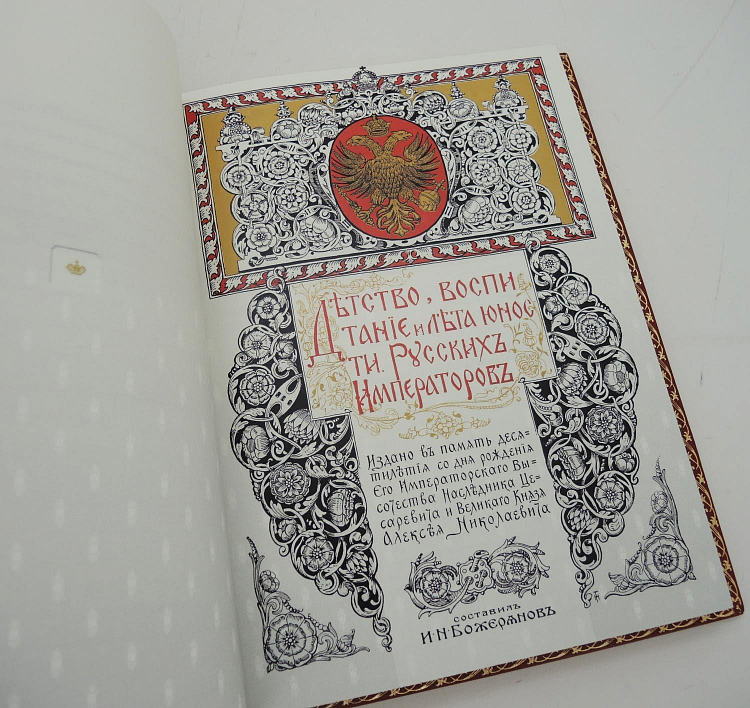 Дѣтство, воспи
танiе и лѣта юнос
ти. Русскихъ
Императоровъ
Издано въ память деся-
тилѣтiя со дня рожденiя
Его Императорскаго Вы-
сочества Наслѣдника Це-
саревича и Великаго Князя
Алексѣя Николаевича
составилъ
И.Н.Божеряновъ